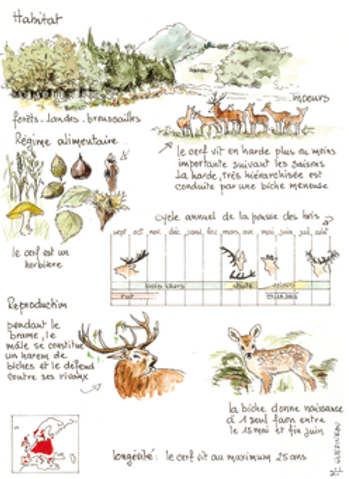 Habitat
forêts. landes. broussailles
moeurs
le cerf vit en harde plus ou moins
importante suivant les saisons
la harde, très hiérarchisée est
conduite par une biche meneuse
Régime alimentaire
le cerf est un
herbivore
cycle annuel de la pousse des bois
sept. oct nov. déc janv. fév. mars. avr. mai. juin. juil. août
bois durs
chute
velours
rut
Reproduction
pendant le
brame, le
mâle se constitue
un harem de
biches et le défend
contre ses rivaux
la biche donne naissance
à 1 seul faon entre
le 15 mai et fin juin
longévité: le cerf vit au maximum 25 ans